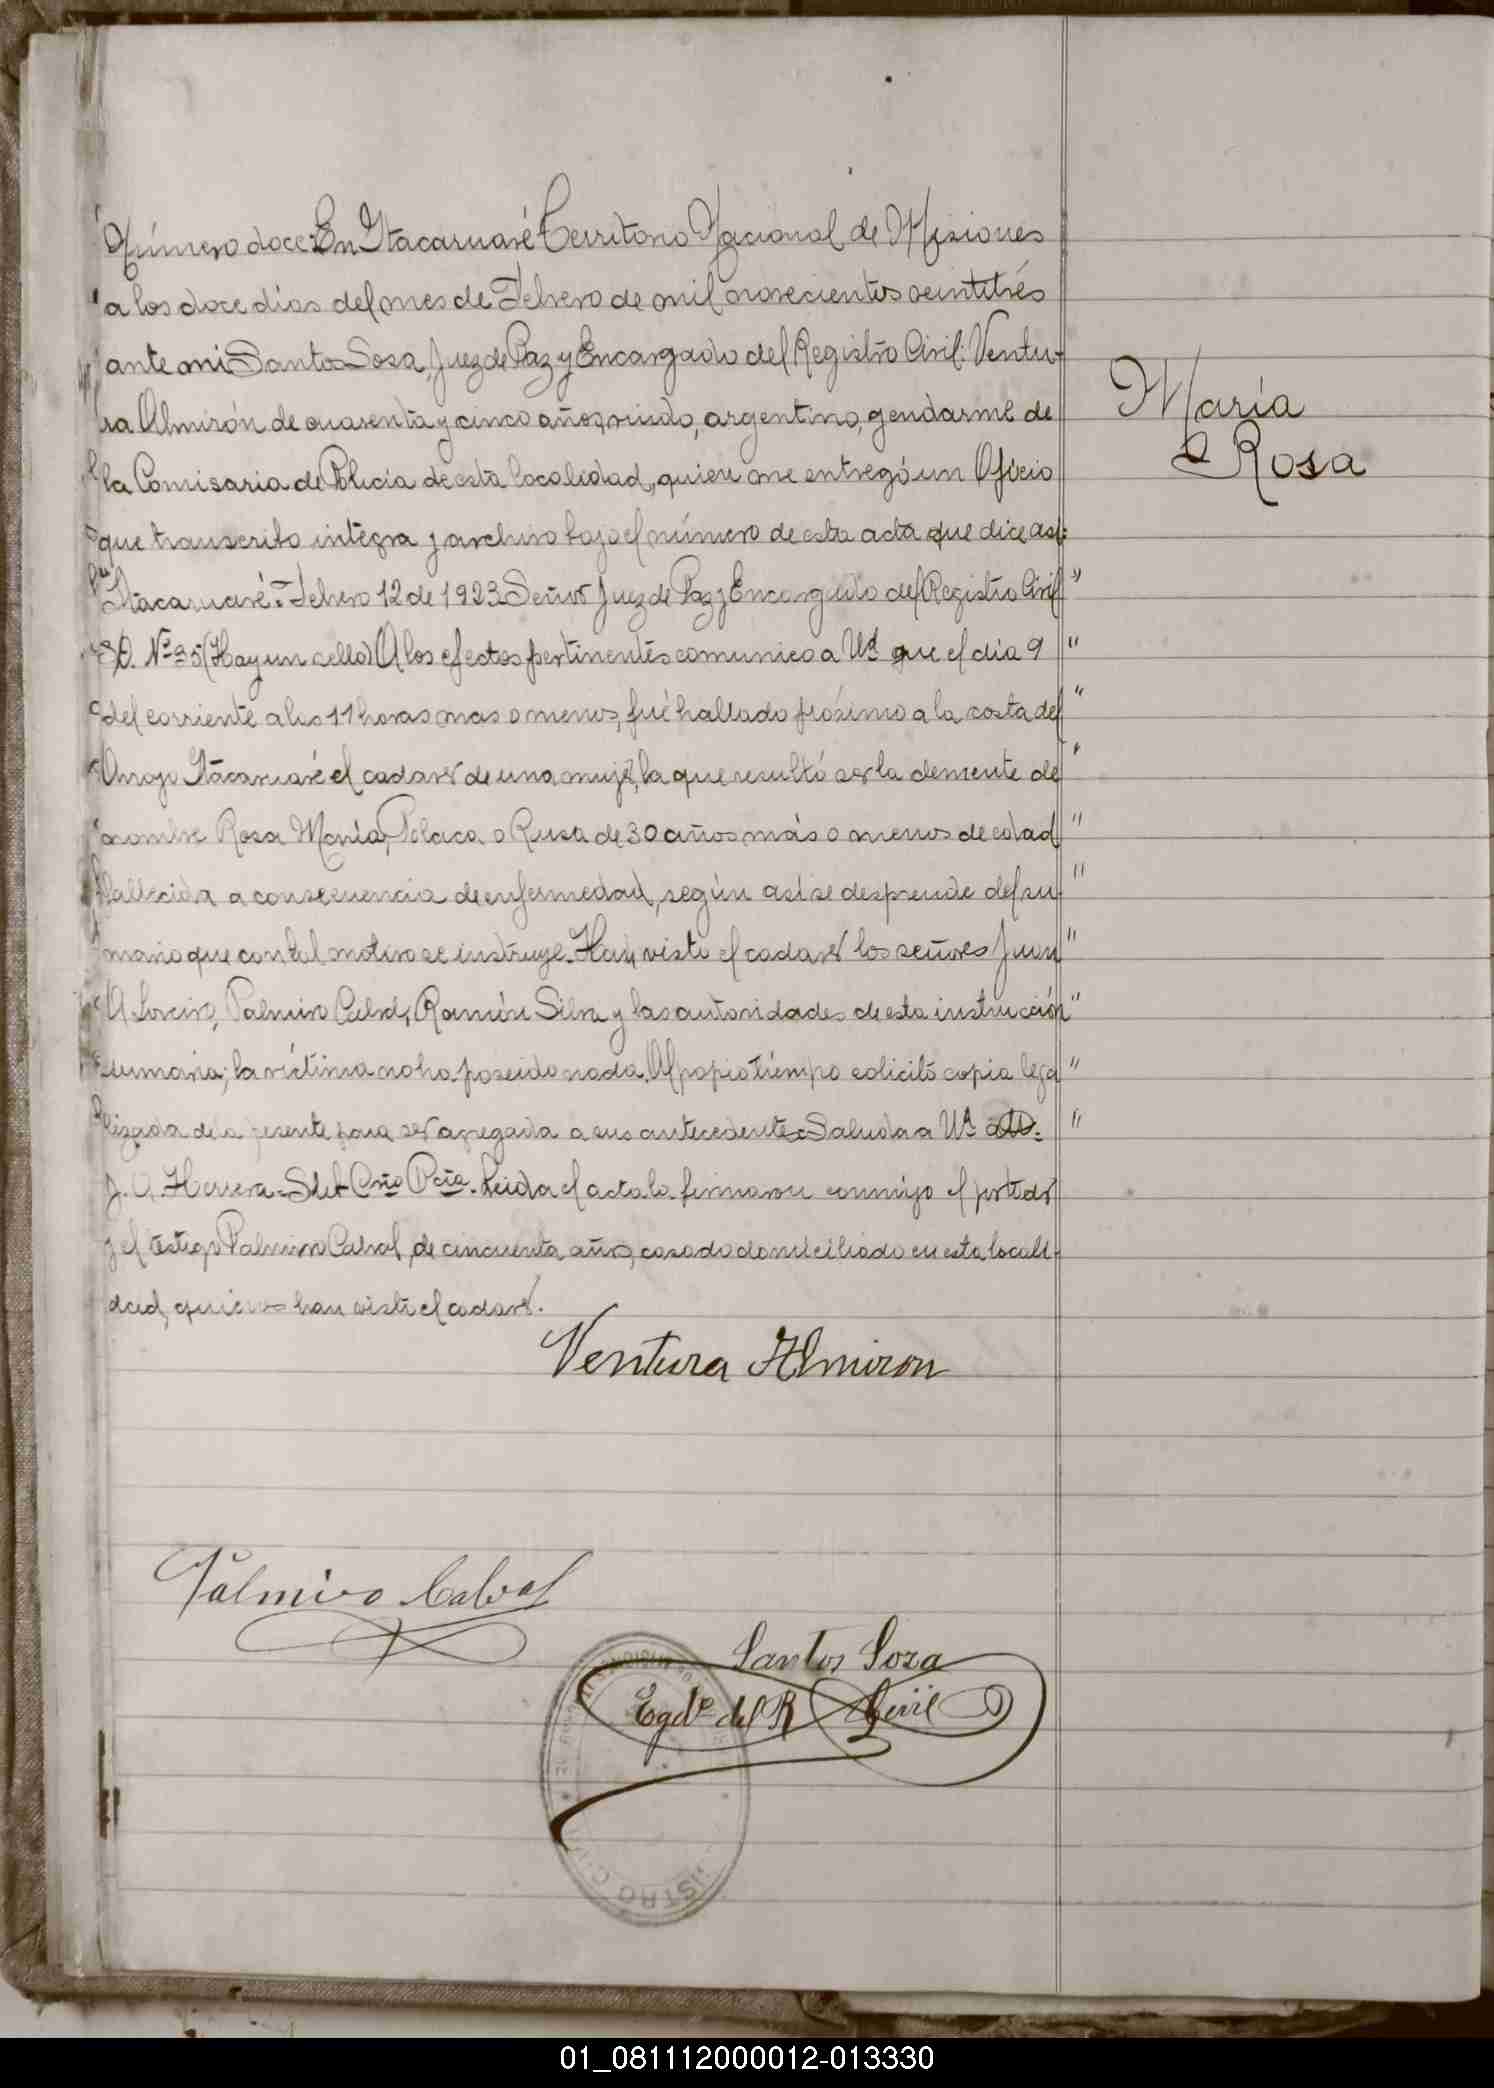 Número doce: En Itacaruaré Territorio Nacional de Misiones
a los doce días del mes de Febrero de mil novecientos veintitrés
ante mi Santos Sosa, Juez de Paz y Encargado del Registro Civil: Ventu-
ra Almirón de cuarenta y cinco años, viudo, argentino, gendarme de
la Comisaria de Policía de esta localidad, quien me entregó un Oficio
que transcrito integra y archivo bajo el número de esta acta que dice así:
Itacaruaré. Febrero 12 de 1923. Señor Juez de Paz y Encargado del Registro Civil "
S/D. Nº 35 (Hay un sello) A los efectos pertinentes comunico a Ud que el día 9 "
del corriente a las 11 horas mas o menos, fué hallado próximo a la costa del "
Arroyo Itacaruaré el cadaver de una mujer, la que resultó ser la demente de "
nombre Rosa María, Polaca o Rusa de 30 años más o menos de edad "
fallecida a consecuencia de enfermedad, según así se desprende del su- "
mario que con tal motivo se instruye. Han visto el cadaver los señores Juan "
A. Palmiro Cabral, Ramón Silva y las autoridades de esta instrucción "
sumaria; la víctima no ha poseido nada. Al propio tiempo solicitó copia lega "
lizada de la presente para ser agregada a sus antecedentes. Saluda a Ud "
J. A. Herrera - Leida el acta la firmaron conmigo el portador
y el testigo Palmiro Cabral, de cincuenta años, casado domiciliado en esta locali-
dad, quienes han visto el cadaver.
María
Rosa
Ventura Almiron
Palmiro Cabral
Santos Soza
Egdo del R Civil
01_081112000012-013330